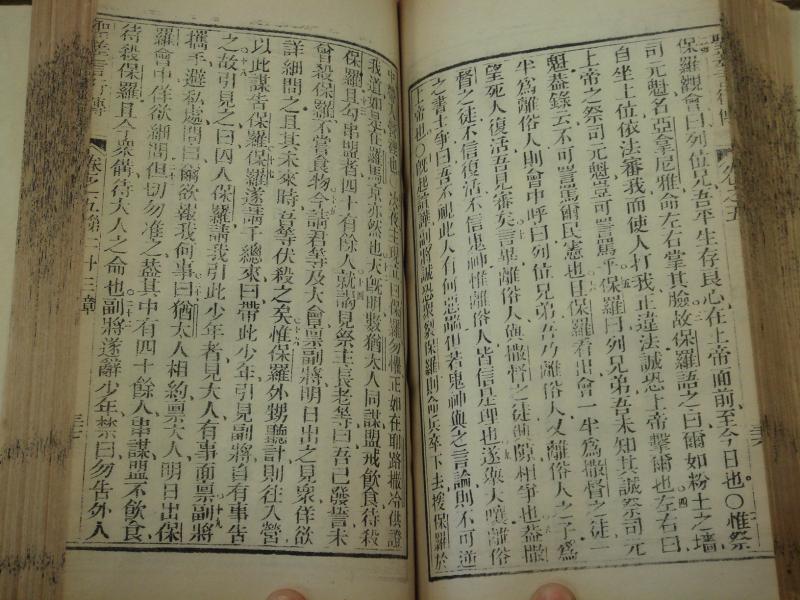 保羅觀會曰列位兄吾平生存良心在上帝面前至今日也○惟祭
司元魁名亞拿尼雅命左右掌其臉故保羅語之曰爾如粉土之墻
自坐上位依法審我而使人打我正違法誠恐上帝擊爾也左右曰
上帝之祭司元魁豈可詈罵乎保羅曰列兄弟吾未知其誠祭司元
魁蓋錄云不可詈爾民憲也且保羅看出會一半爲撒督之徒一
半爲離俗人則會中呼曰列位兄弟吾乃離俗人又離俗人之子爲
望死人復活吾見審矣言畢離俗人與撒督之徒相爭也蓋撒
督之徒不信復活不信鬼神惟離俗人皆信是理也遂衆大嚷離俗
之書士爭曰吾不視此人有何惡端但若鬼神與之言論則不可逆
上帝也○旣起誠恐裂保羅則命兵卒下去接保羅於
主現立曰保羅勿懼正如在耶路撒冷供證
我道如是在羅馬京亦然也○旣明數猶太人同謀盟戒飲食待殺
保羅且勾串盟者四十有餘人就謁見祭主長老等曰吾已發誓未
曾殺保羅不嘗食物今請君等及大會稟副將明日出之見衆佯欲
詳細問之且其未來時吾等伏殺之矣惟保羅外甥聽計則往入營
以此謀告保羅保羅遂請千總來曰帶此少年引見副將自有事告
之故引見之曰囚人保羅請我引此少年者見大人有事面稟副將
攜手避私處問曰爾欲報我何事曰猶太人相約稟大人明日出保
羅會中佯欲細問但切勿准之蓋其中有四十餘人串謀盟不飲食
待殺保羅且今衆備待大人之命也副將遂辭少年禁曰勿告外人
聖差言行傳 卷之五第二十三章